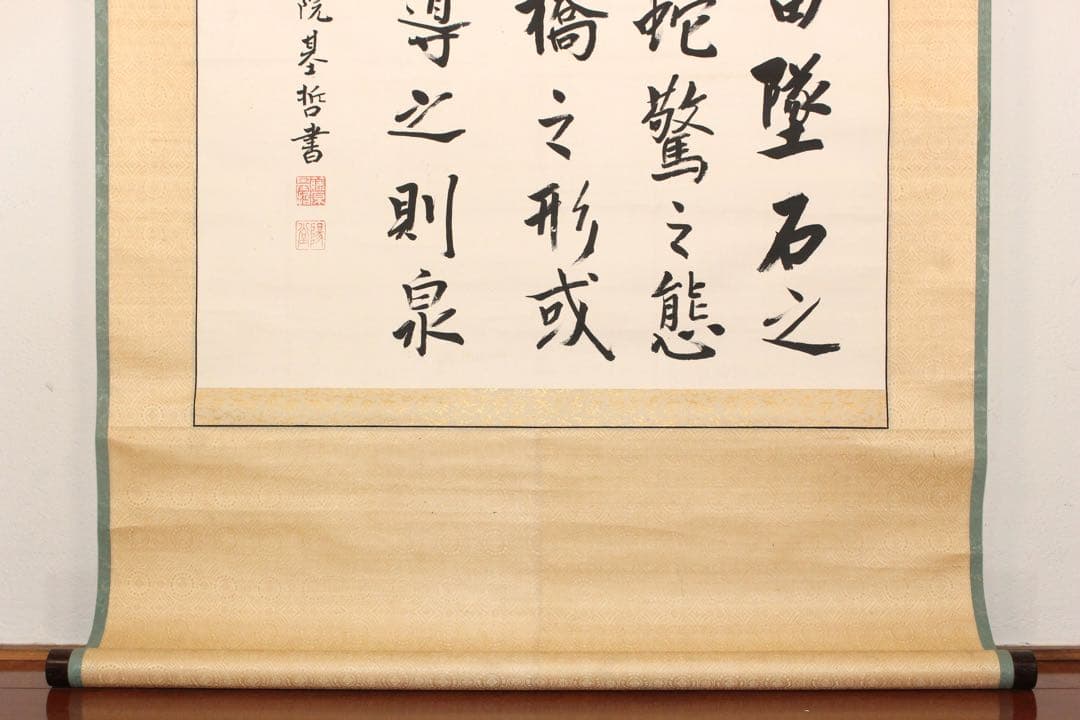 墜石之
蛇驚之態
槁之形或
導之則泉
院基哲書